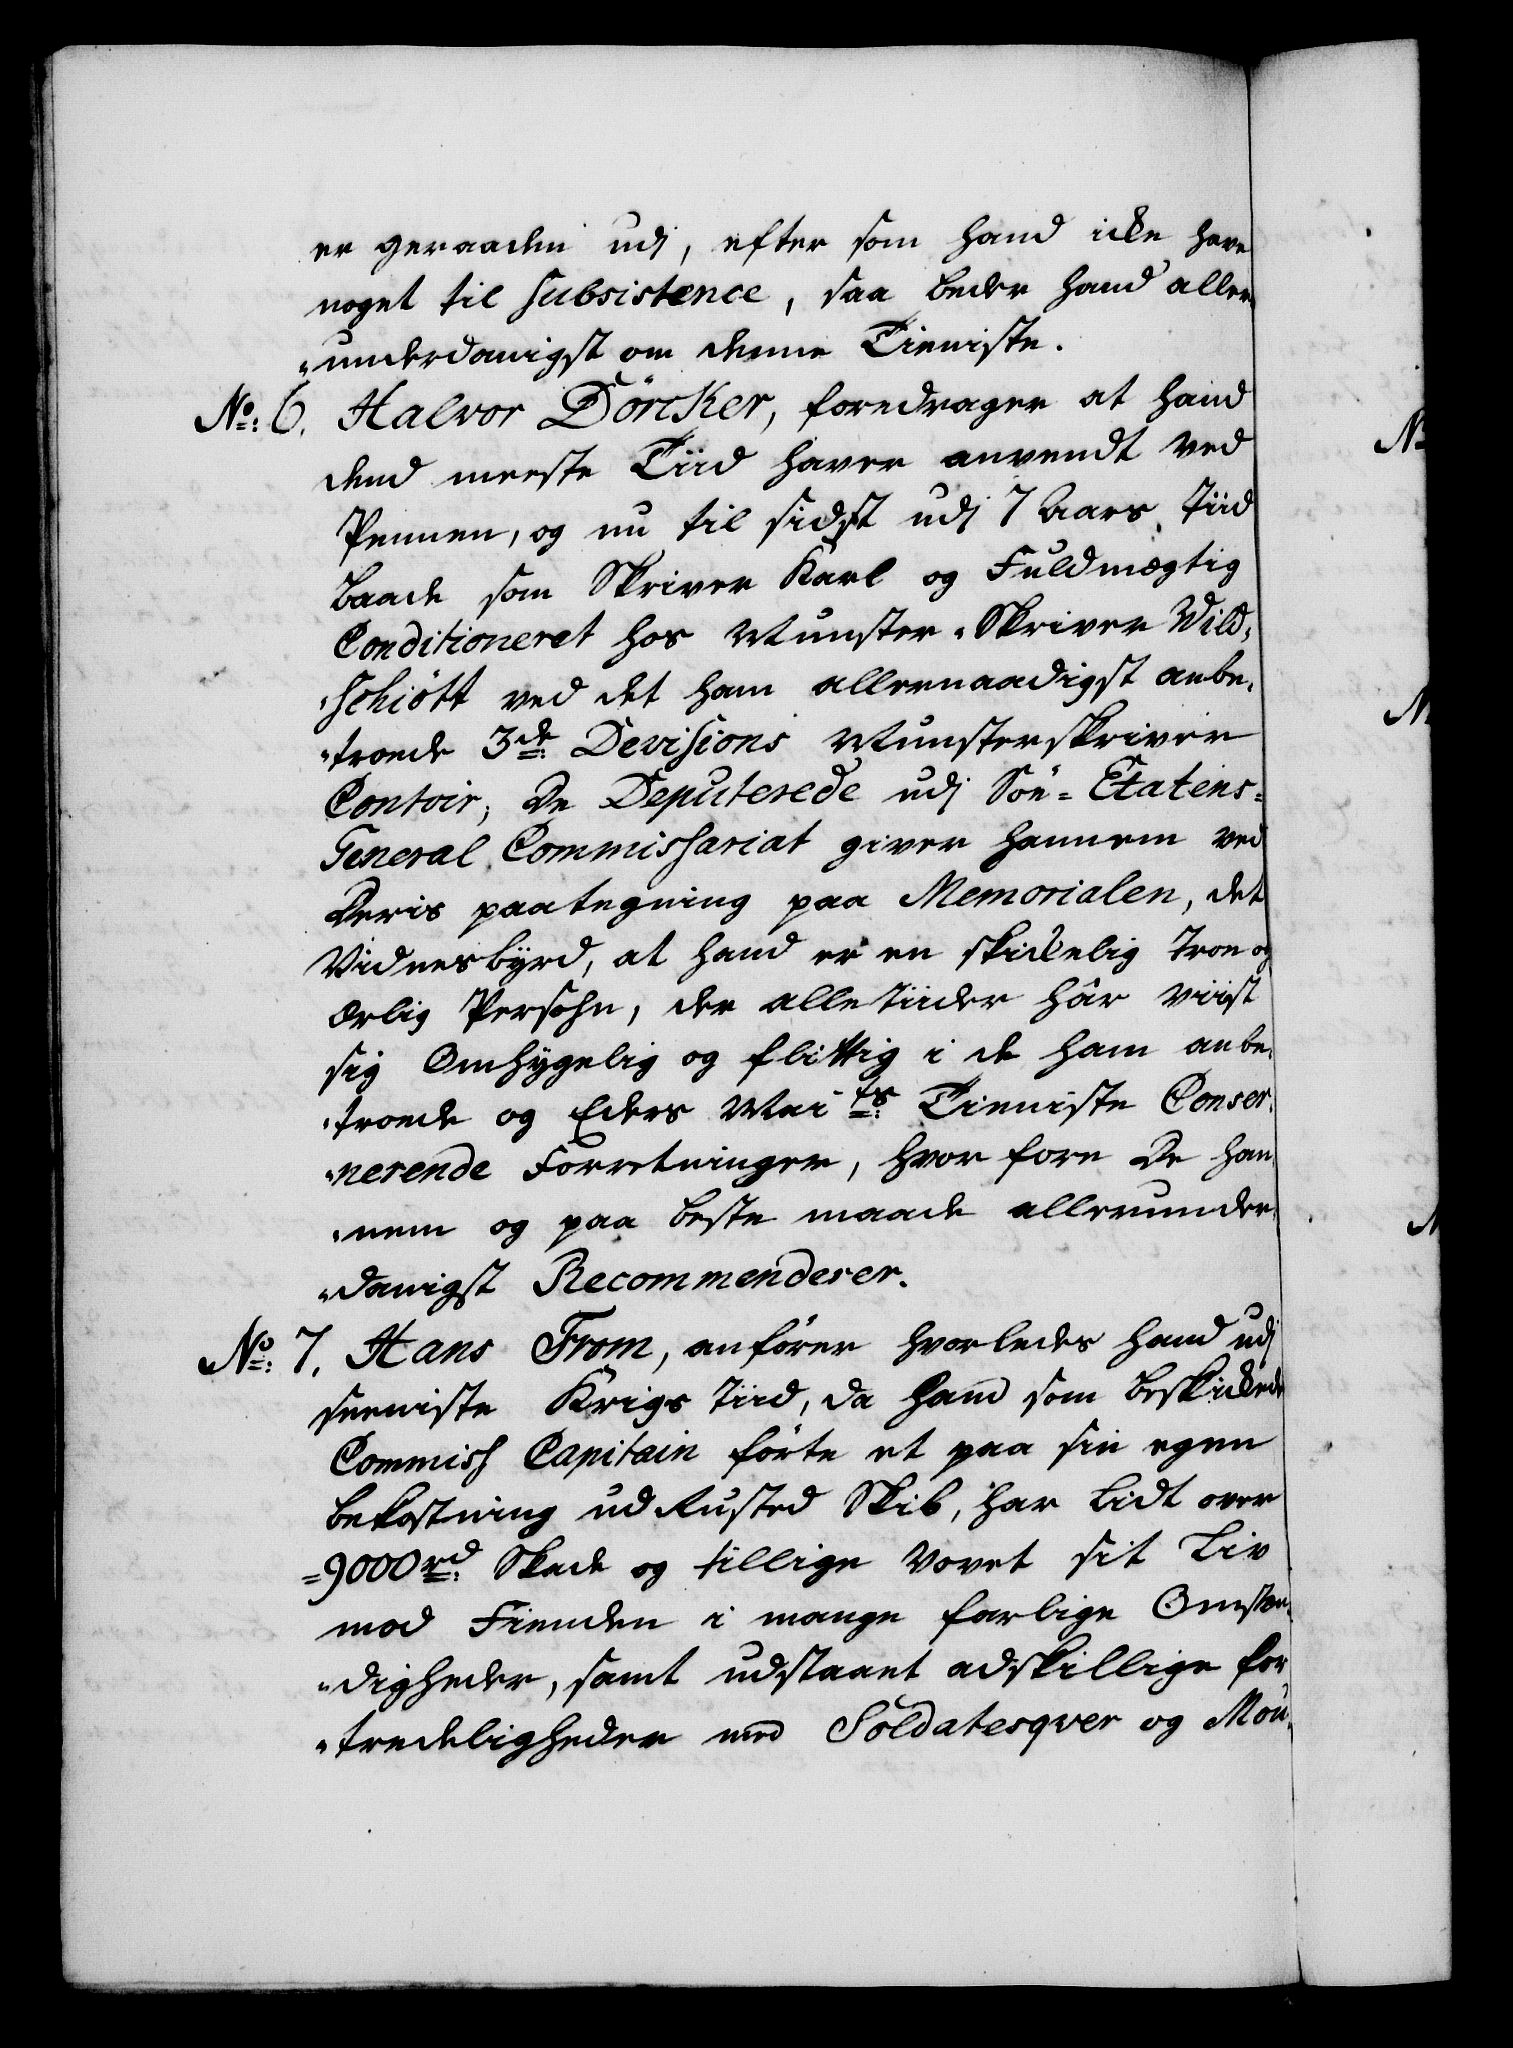 er geraaden udj, efter som hand icke have
noget til subsistence, saa beder hand aller
"underdanigst om denne Tieniste.
No: 6. Halvor Dörcker, foredrager at hand
dend meeste Tiid haver anvendt ved
Pennen, og nu til sidst udj 7 Aars Tiid
baade som Skriver Karl og Fuldmægtig
Conditioneret hos Munster-Skriver Wild-
"schiött ved det ham allernaadigst anbe-
"troede 3de Devisions Munsterskriver
Contoir; De Deputerede udj Söe-Etatens-
General Commissariat giver hannem ved
Deris paategning paa Memorialen, det
Vidnesbÿrd, at hand er en skickelig troe og
ærlig Persohn, der alle tiider hâr viist
sig Omhÿgelig og flittig i de ham anbe-
"troede og Eders Maits Tieniste Conser-
"nerende Forretninger, hvor fore De han-
"nem og paa beste maade allerunder-
"danigst Recommenderer.
No: 7. Hans From, anförer hvorledes hand udj
seeniste Krigs Tiid, da hand som beskickede
Commiss Capitain förte et paa sin egen
bekostning ud Rusted Skib, har Lidt over
=9000rd Skade og tillige Vovet sit Liv
mod Fienden i mange farlige Omstæn-
"digheder, samt udstaaet adskillige for
"tredeligheder med Soldatesqver og Mou-